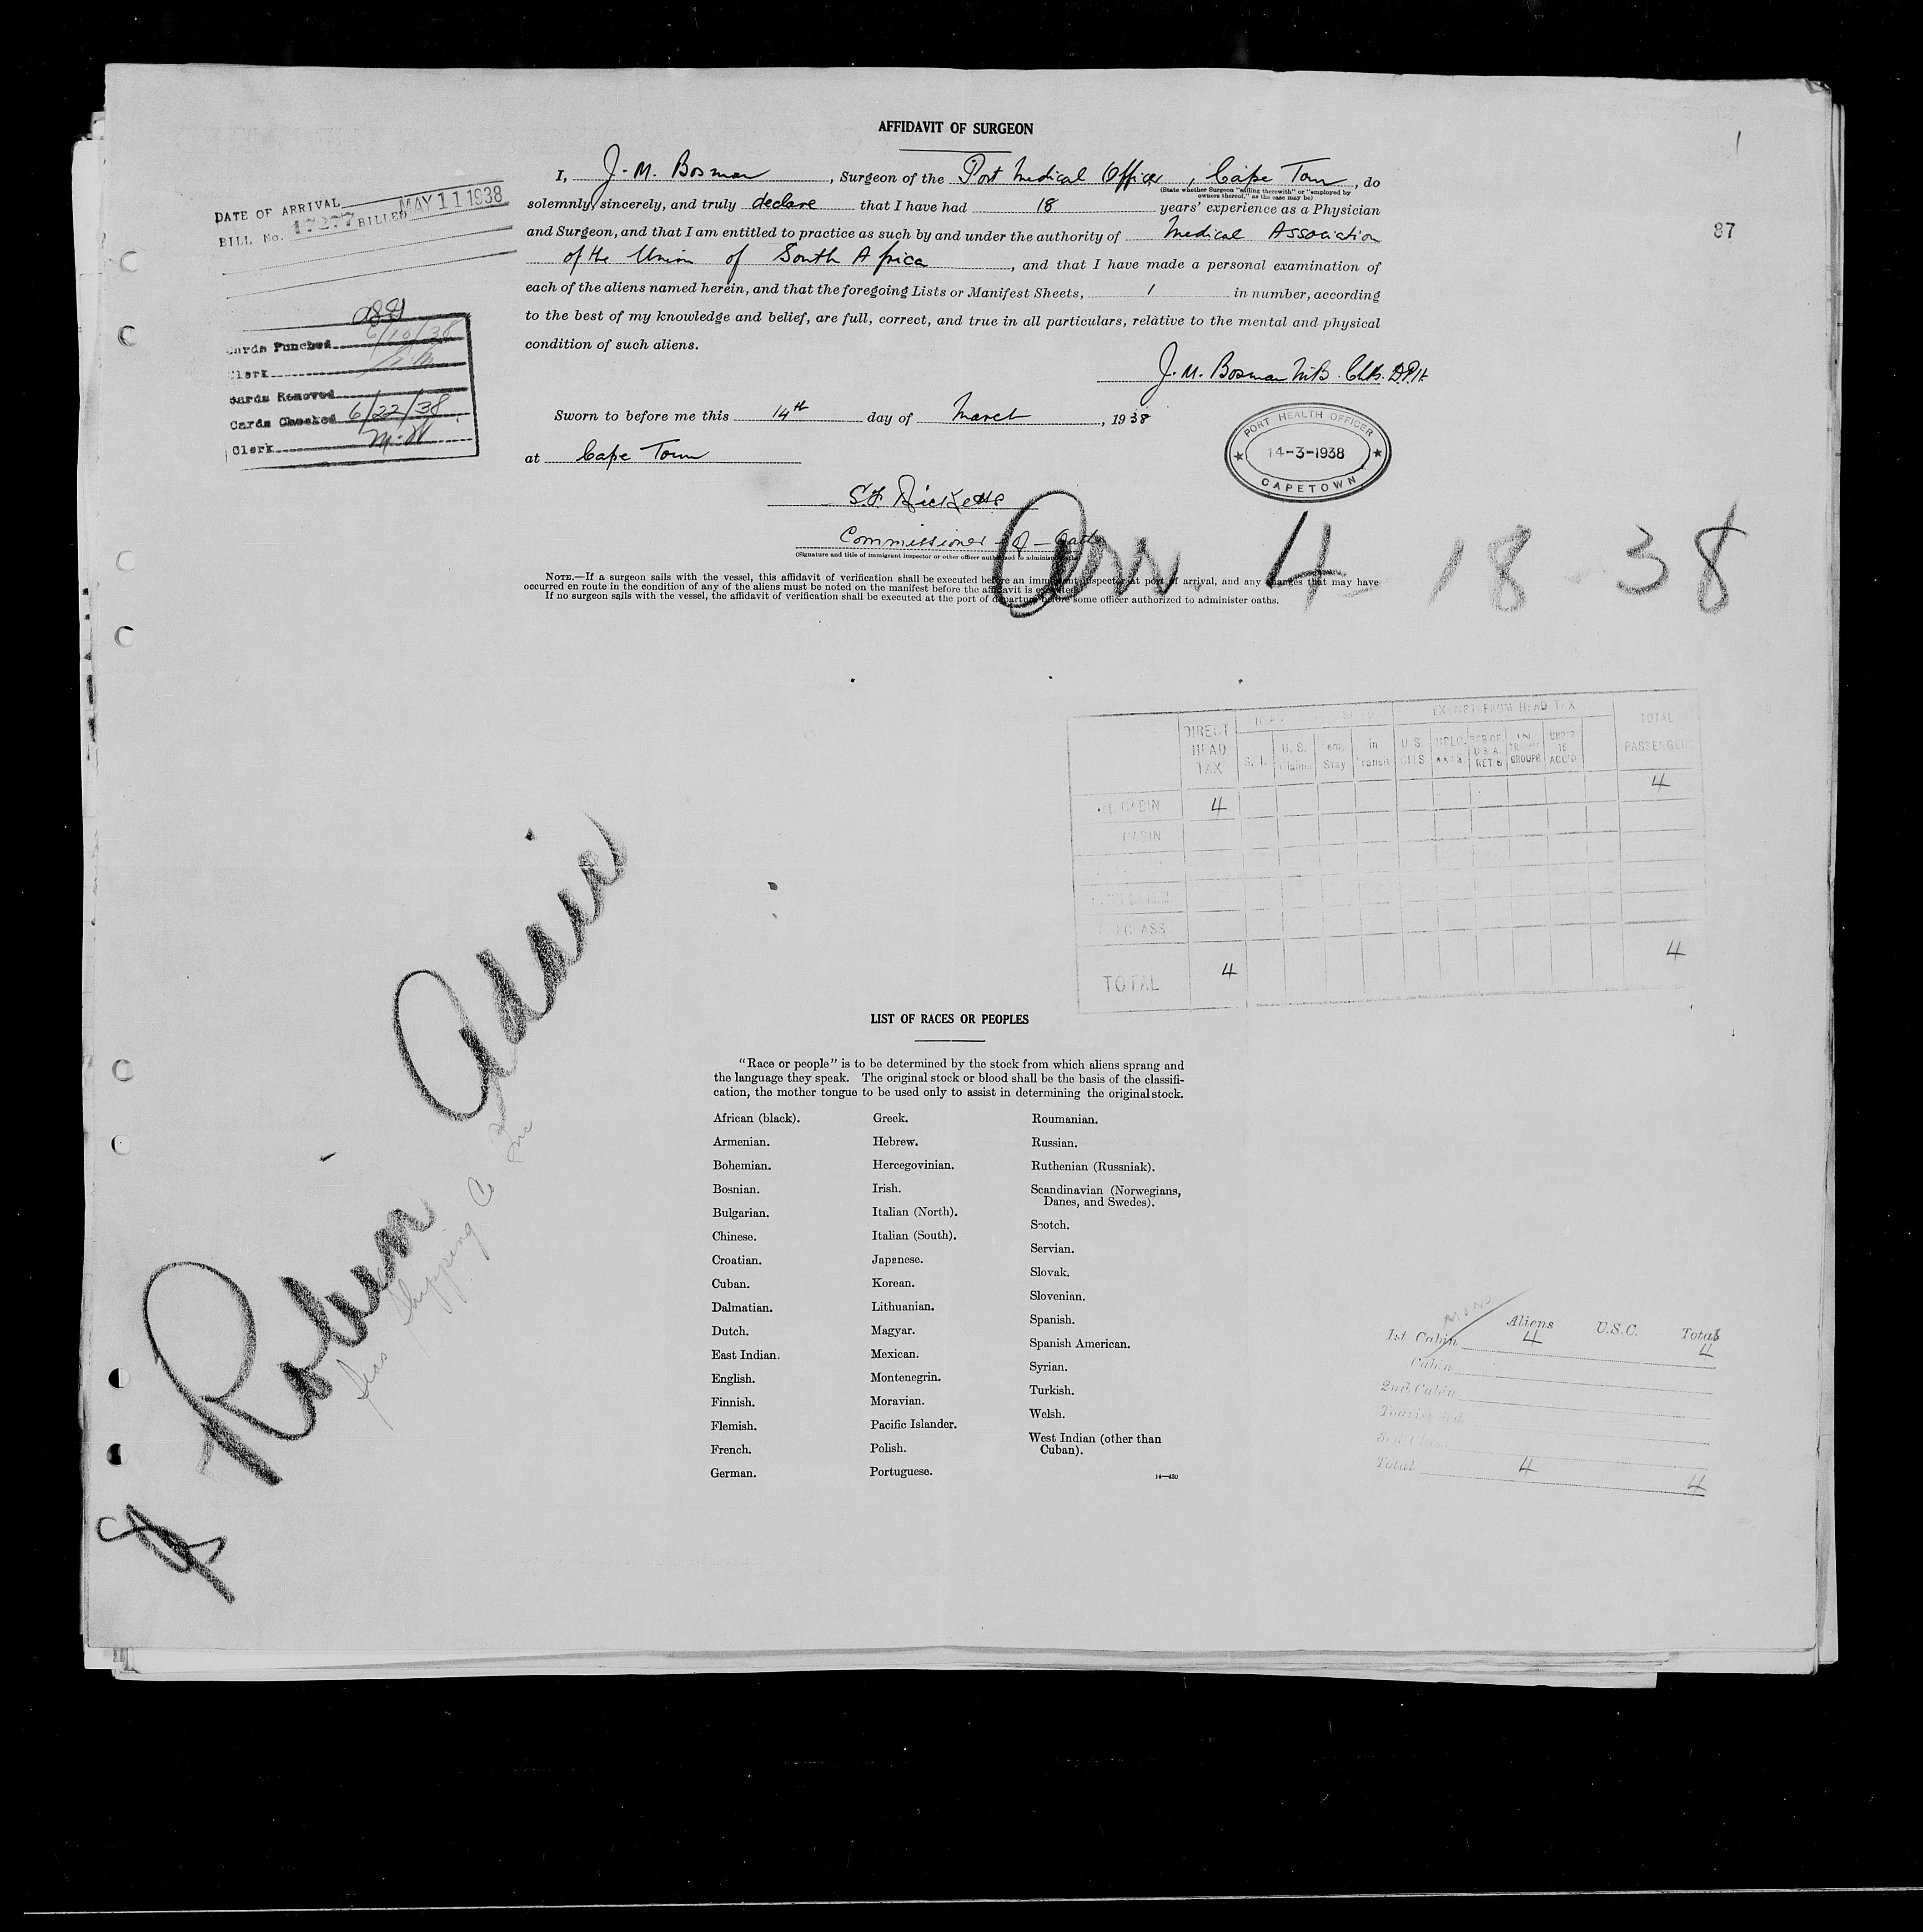 AFFIDAVIT OF SURGEON
1
87
I, J. M. Bosman, Surgeon of the Port Medical Office, Cape Town, do
(State whether Surgeon "sailing therewith" or "employed by
owners thereof," as the case may be)
solemnly, sincerely, and truly declare that I have had 18 years' experience as a Physician
and Surgeon, and that I am entitled to practice as such by and under the authority of Medical Association
of the Union of South Africa, and that I have made a personal examination of
each of the aliens named herein, and that the foregoing Lists or Manifest Sheets, 1 in number, according
to the best of my knowledge and belief, are full, correct, and true in all particulars, relative to the mental and physical
condition of such aliens.
J. M. Bosman M.B. Ch.B. D.P.H.
Sworn to before me this 14th day of March, 1938
at Cape Town
PORT HEALTH OFFICER
14-3-1938
CAPETOWN
S.F. Ricketts
Commissioner of Oaths
(Signature and title of immigrant inspector or other officer authorized to administer oaths)
NOTE.—If a surgeon sails with the vessel, this affidavit of verification shall be executed before an immigrant inspector at port of arrival, and any changes that may have
occurred en route in the condition of any of the aliens must be noted on the manifest before the affidavit is executed.
If no surgeon sails with the vessel, the affidavit of verification shall be executed at the port of departure before some officer authorized to administer oaths.
Arr. 4-18-38
DATE OF ARRIVAL
BILL No. 17277 BILLED MAY 11 1938
Cards Punched 6/10/38
Clerk
Cards Removed
Cards Checked 6/22/38
Clerk
DIRECT HEAD TAX
S. I.
U. S. Claims
Tem. Stay
in Transit
EXEMPT FROM HEAD TAX
U S CITS
DIPLO-MATS
RES OF U.S.A. RET'G
IN TRANSIT GROUPS
UNDER 16 ACC'D
TOTAL PASSENGERS
CABIN 4 4
CABIN
CLASS
TOTAL 4 4
Robin Adair
Seas Shipping Co Inc
LIST OF RACES OR PEOPLES
"Race or people" is to be determined by the stock from which aliens sprang and
the language they speak. The original stock or blood shall be the basis of the classifi-
cation, the mother tongue to be used only to assist in determining the original stock.
African (black).
Armenian.
Bohemian.
Bosnian.
Bulgarian.
Chinese.
Croatian.
Cuban.
Dalmatian.
Dutch.
East Indian.
English.
Finnish.
Flemish.
French.
German.
Greek.
Hebrew.
Hercegovinian.
Irish.
Italian (North).
Italian (South).
Japanese.
Korean.
Lithuanian.
Magyar.
Mexican.
Montenegrin.
Moravian.
Pacific Islander.
Polish.
Portuguese.
Roumanian.
Russian.
Ruthenian (Russniak).
Scandinavian (Norwegians,
Danes, and Swedes).
Scotch.
Servian.
Slovak.
Slovenian.
Spanish.
Spanish American.
Syrian.
Turkish.
Welsh.
West Indian (other than
Cuban).
14—430
Aliens U.S.C. Total
1st Cabin 4 4
Cabin
2nd Cabin
Tourist 3rd
3rd Class
Total 4 4